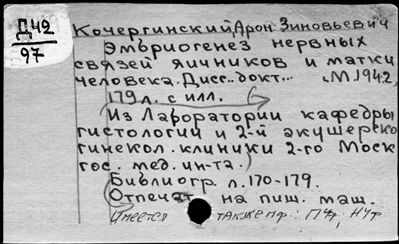 Д42
97
Кочергинский, Арон Зиновьевич
Эмбриогенез нервных
связей яичников и матки
человека. Дисс.. докт... М. 1942,
179 л. с илл.
(Из Лаборатории кафедры
гистологии и 2-й акушерско
гинекол. клиники 2-го Моск
гос. мед. ин-та.)
Библиогр. л. 170-179.
Отпечат на пиш. маш.
Имеется также